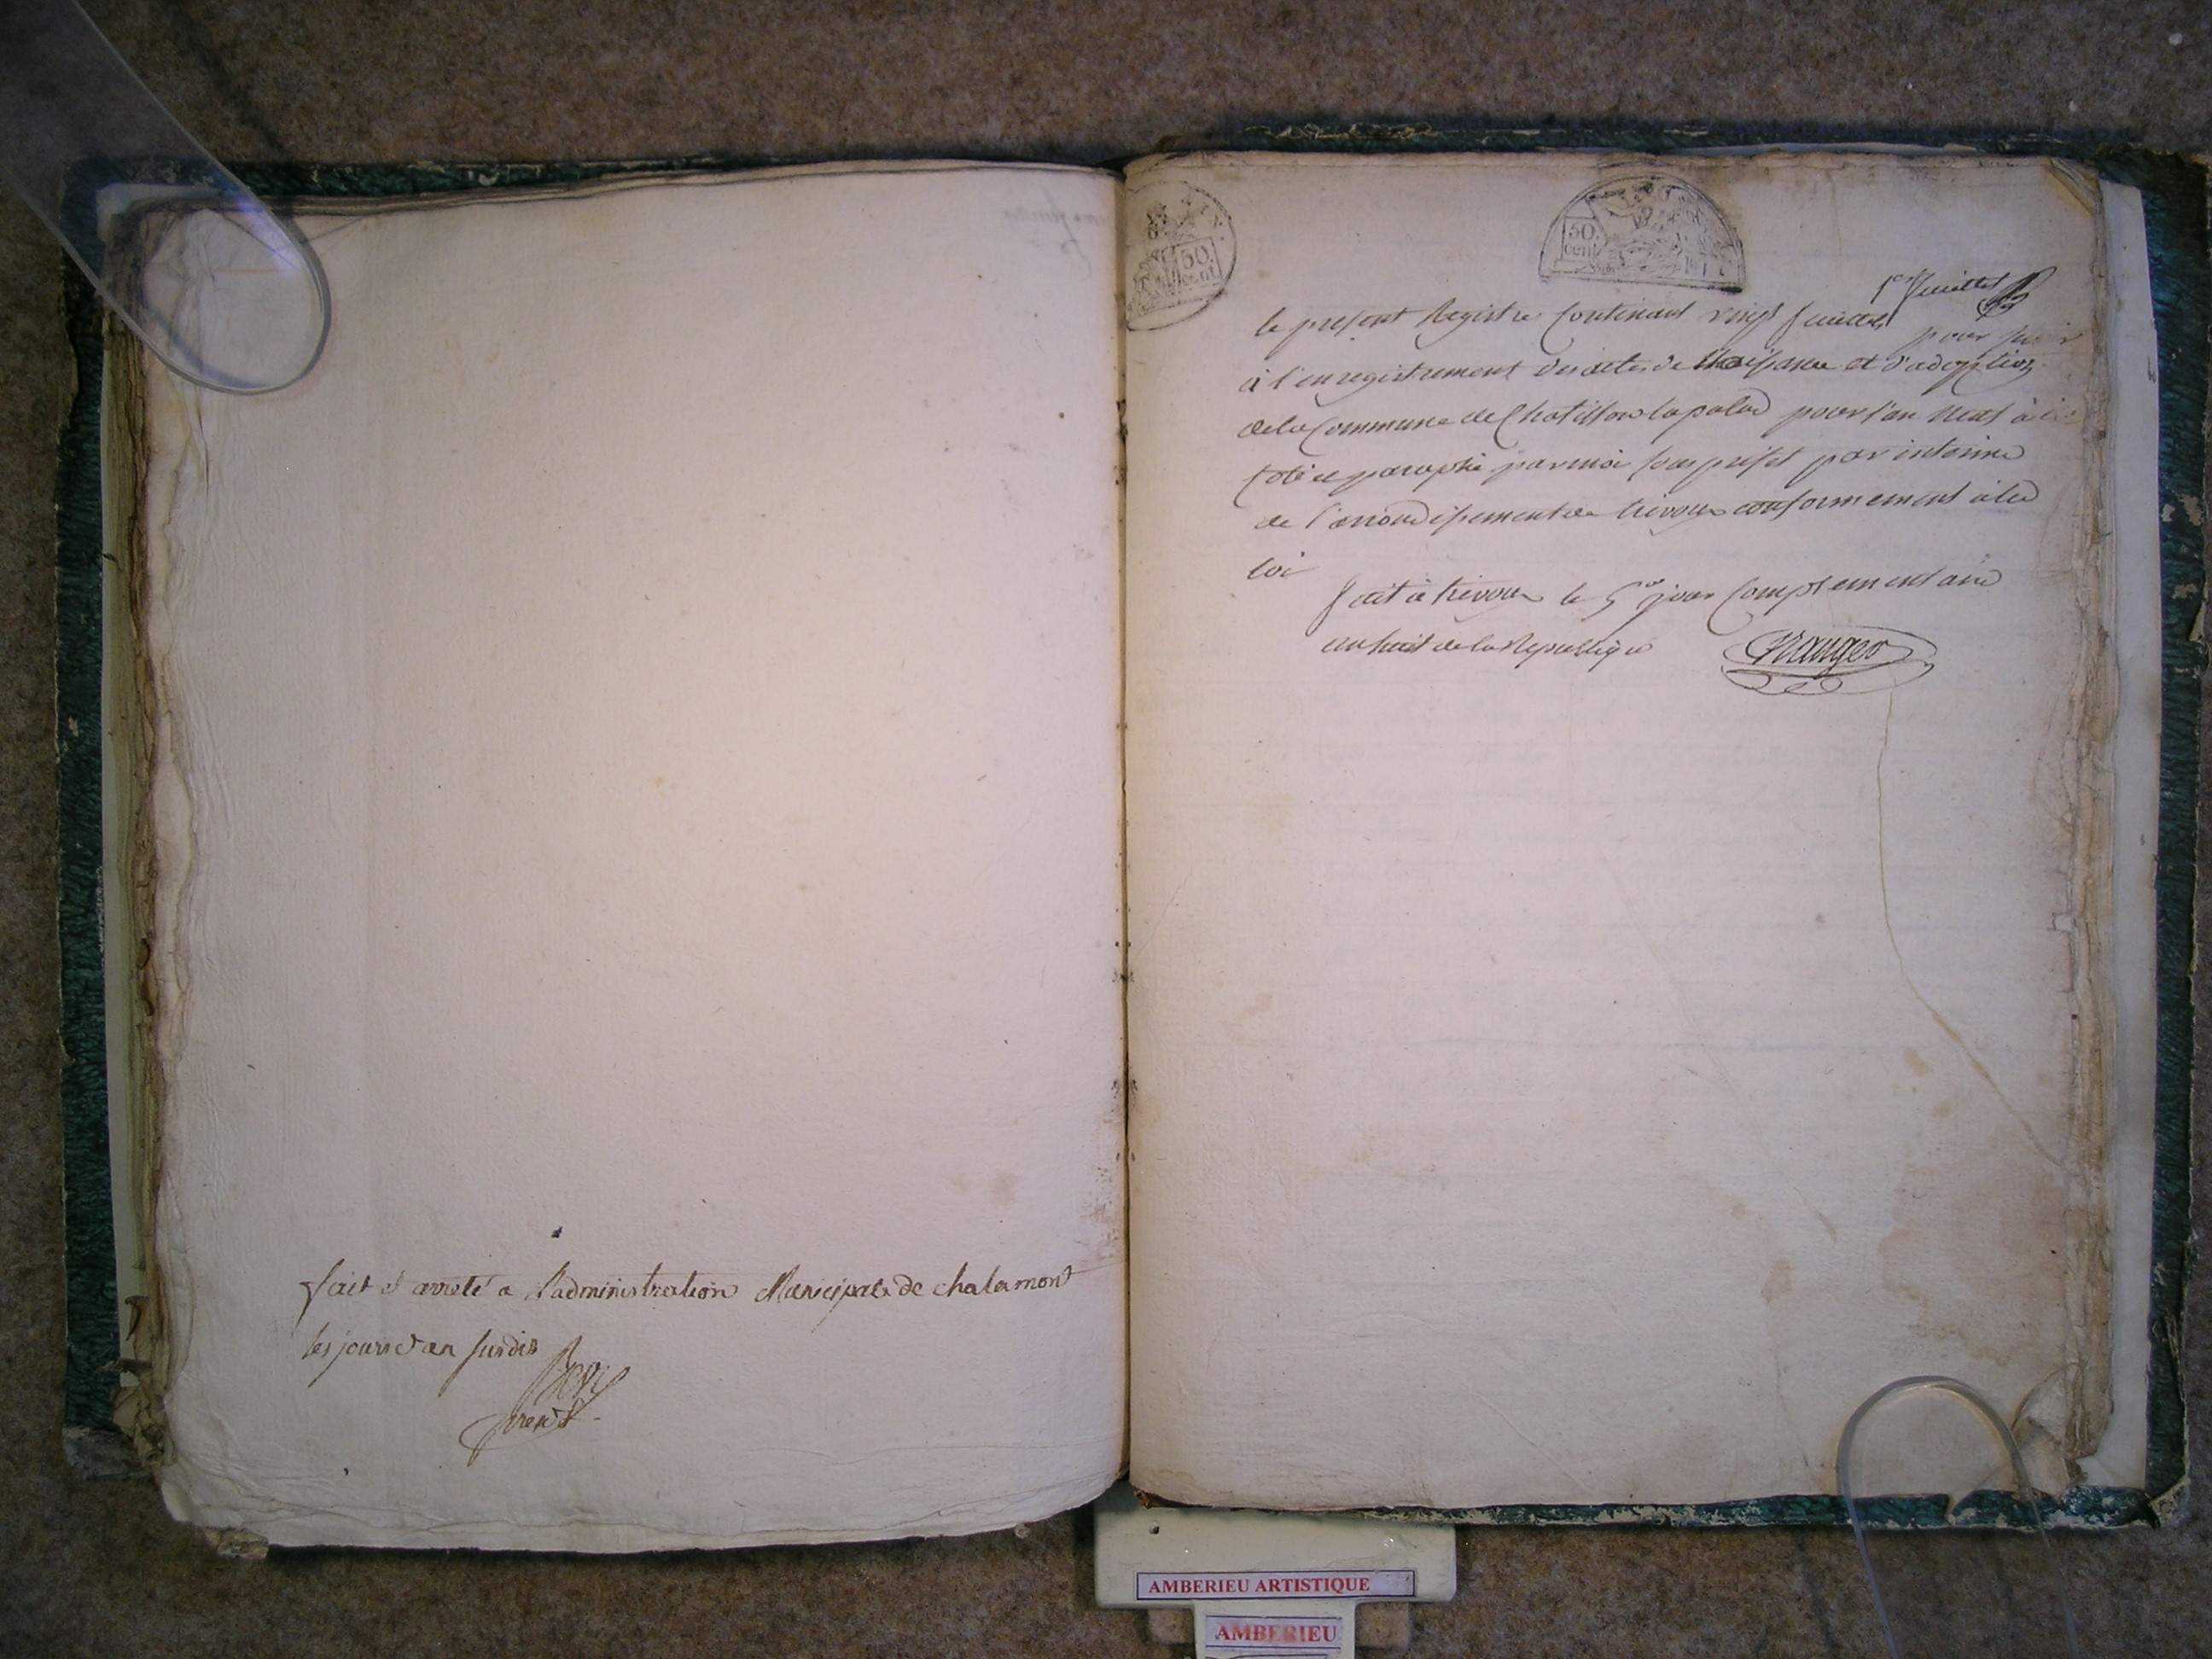 fait et arreté a l'administration Municipale de chalamont
les jours et an susdits
50
cent
50.
cent
1er feuillet
le present Registre Contenant vingt feuillets pour servir
à l'enregistrement des actes de Naissance et d'adoption
de la Commune de Chatillon la palud pour l'an neuf à été
Coté et paraphé par moi sous prefet par interim
de l'arrondissement de trevoux conformement à la
loi
fait à trevoux le 5e jour Complementaire
an huit de la Republique
AMBERIEU ARTISTIQUE
AMBERIEU